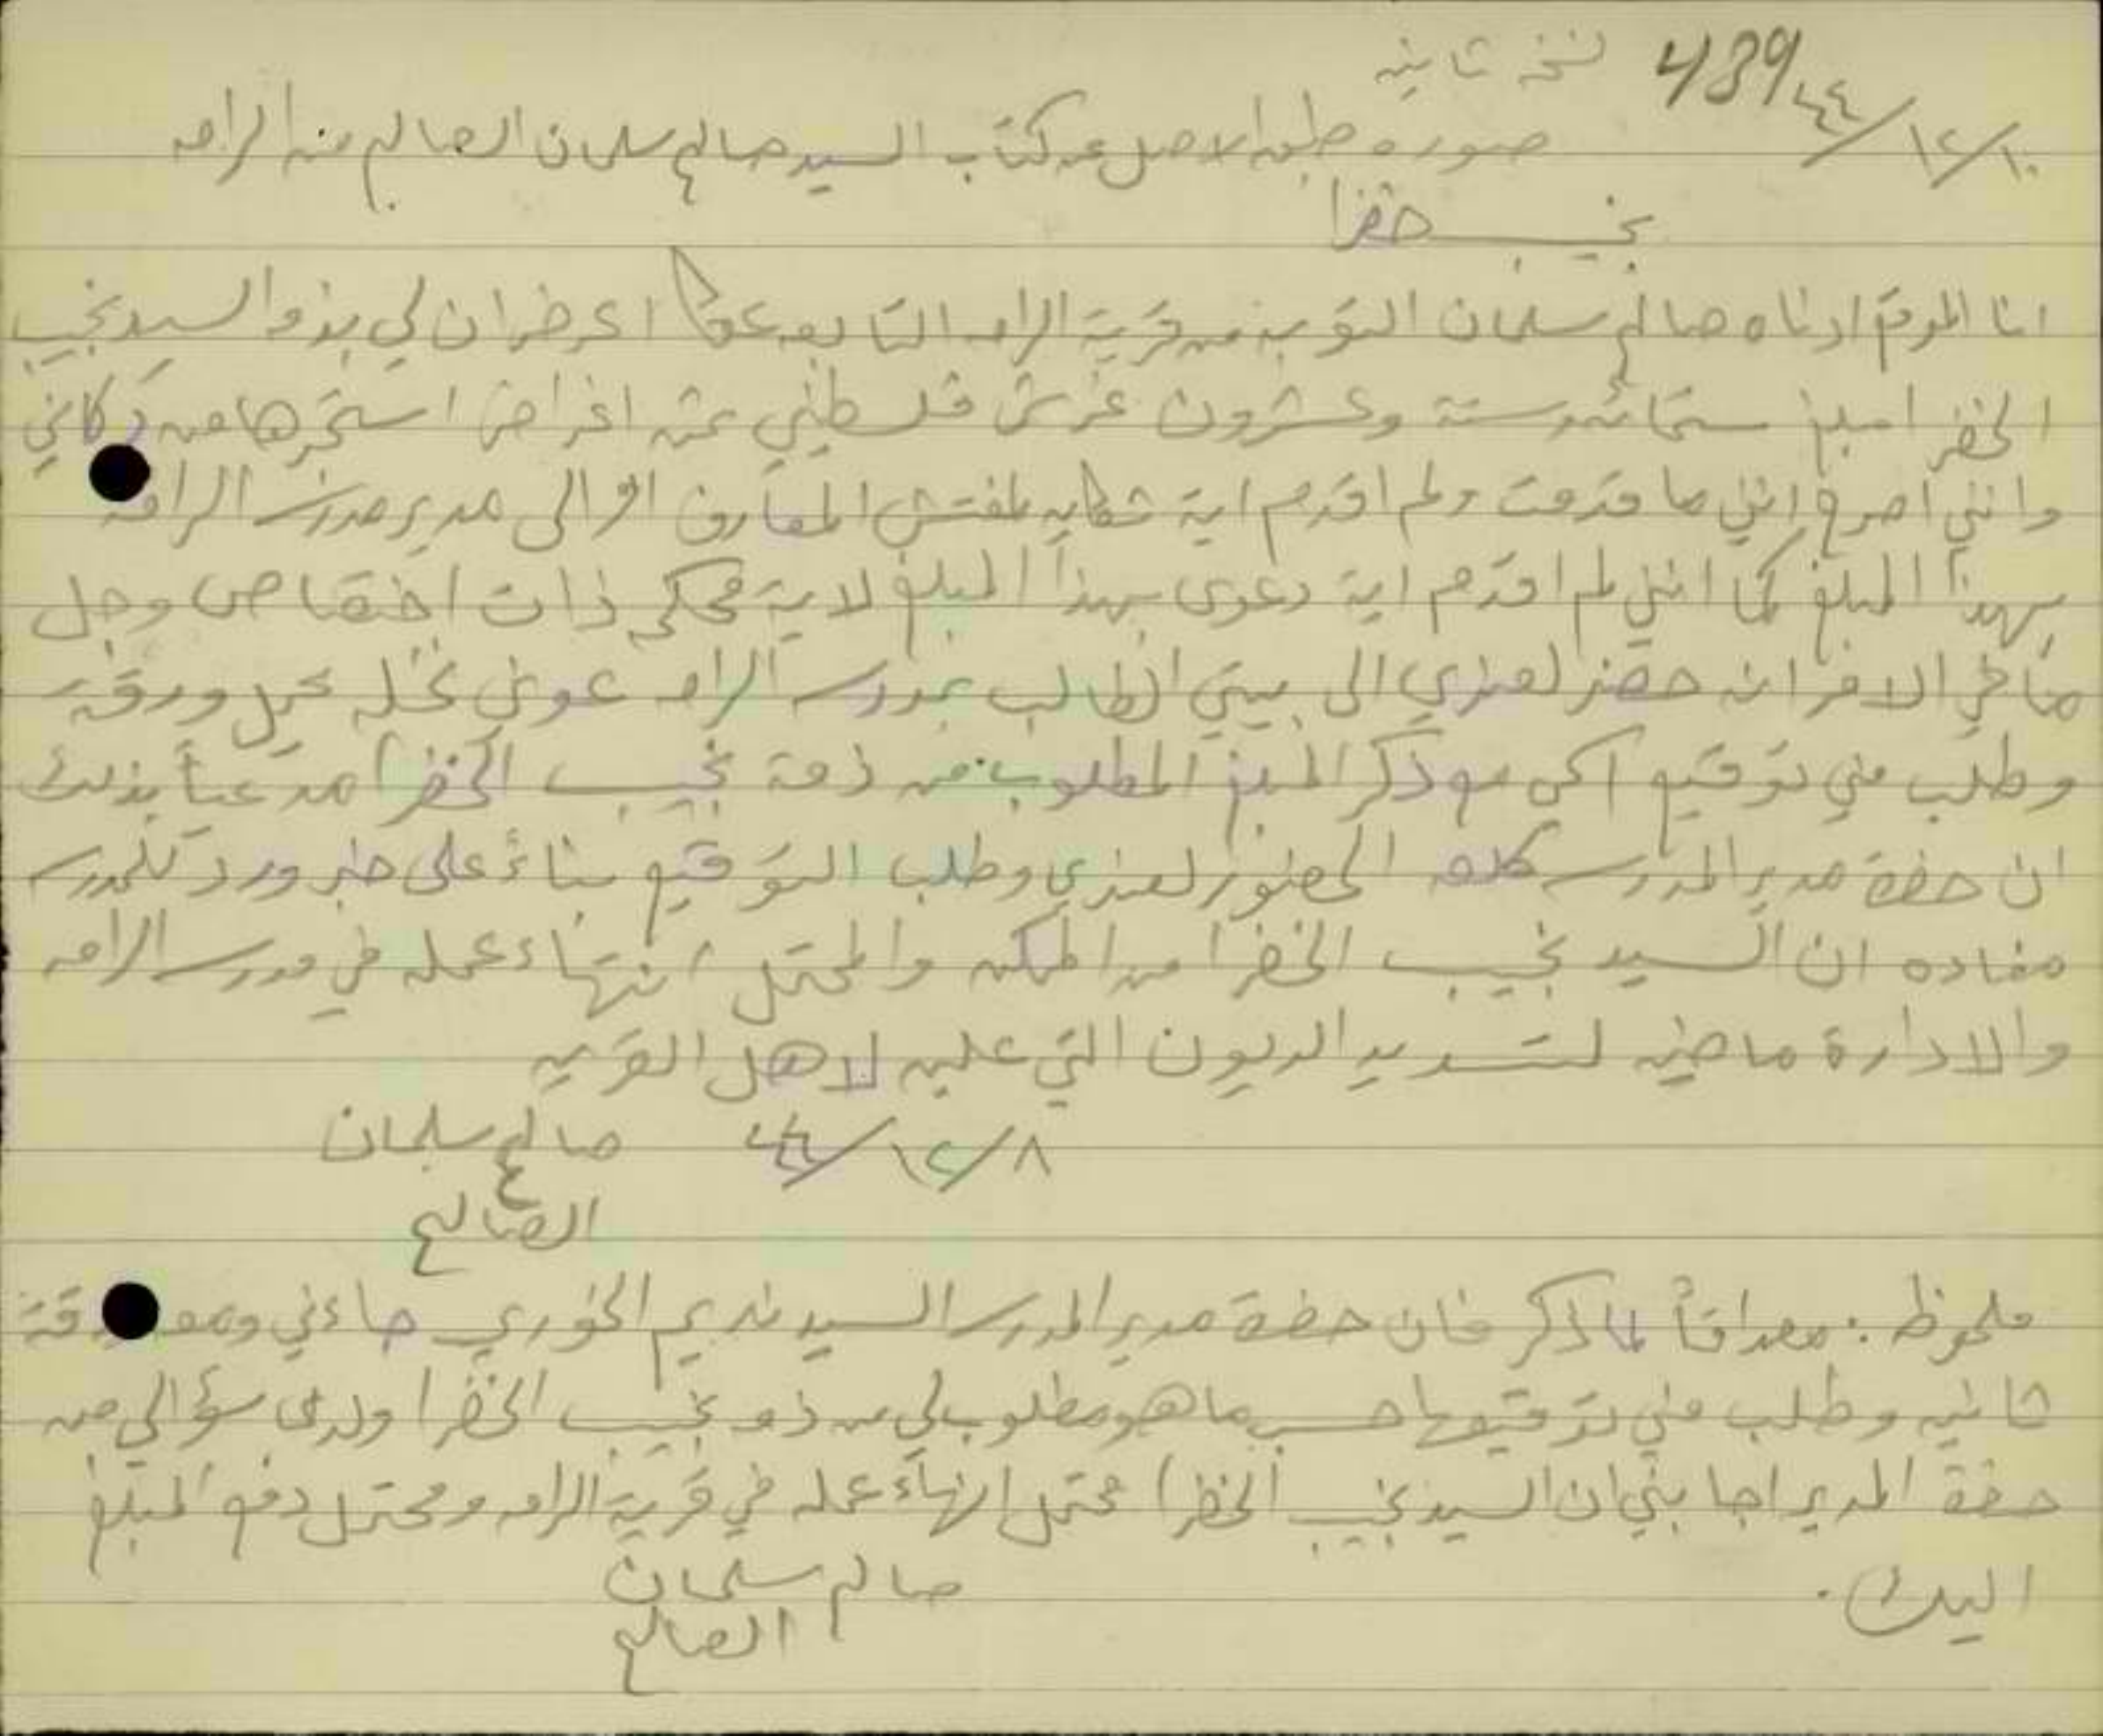 439 نسخه ثانيه
٤٤/١٢/١٠
صوره طبق الاصل عن كتاب السيد صالح سلمان الصالح من الرامه
نجيب خضرا
انا الموقع ادناه صالح سلمان من قرية الرامه التابعه عكا اعرض ان لي بذمة السيد نجيب
الخضرا مبلغ ستمائه وستة وعشرون غرش فلسطيني ثمن اغراض استجرها من دكاني
وانني اصرح انني ما قدمت ولم اقدم اية شكايه لمفتش المعارف او الى مدير مدرسة الرامه
بهذا المبلغ كما انني لم اقدم اية دعوى بهذا المبلغ لاية محكمه ذات اختصاص وجل
ما في الامر انه حضر لعندي الى بيتي الطالب بمدرسة الرامه عوني نخله يحمل ورقة
وطلب مني توقيع اسمي مع ذكر المبلغ المطلوب من ذمة نجيب الخضرا مدعياً بذلك
ان حضرة مدير المدرسه كلفه الحضور لعندي وطلب التوقيع بناءً على خبر ورد للمدرسه
مفاده ان السيد نجيب الخضرا من الممكن والمحتمل انتهاء عمله في مدرسة الرامه
والادارة ماضيه لتسديد الديون التي عليه لاهل القريه
٤٤/١٢/٨ صالح سلمان
الصالح
ملحوظه : مصداقاً لما ذكر فان حضرة مدير المدرسه السيد نديم الخوري جاءني ومعه
ثانيه وطلب مني توقيعها حسب ما هو مطلوب لي من ذمة نجيب الخضرا ولدى سؤالي من
حضرة المدير اجابني ان السيد نجيب الخضرا محتمل انهاء عمله في قرية الرامه ومحتمل دفع المبلغ
اليك .
صالح سلمان
الصالح